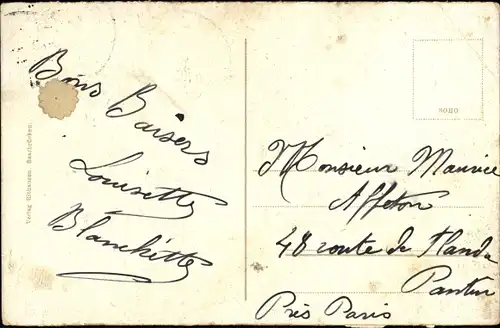 Bons Baisers
Louisette
Blanchette
Monsieur Maurice
Affeton
48 route de Flandre
Pantin
Près Paris